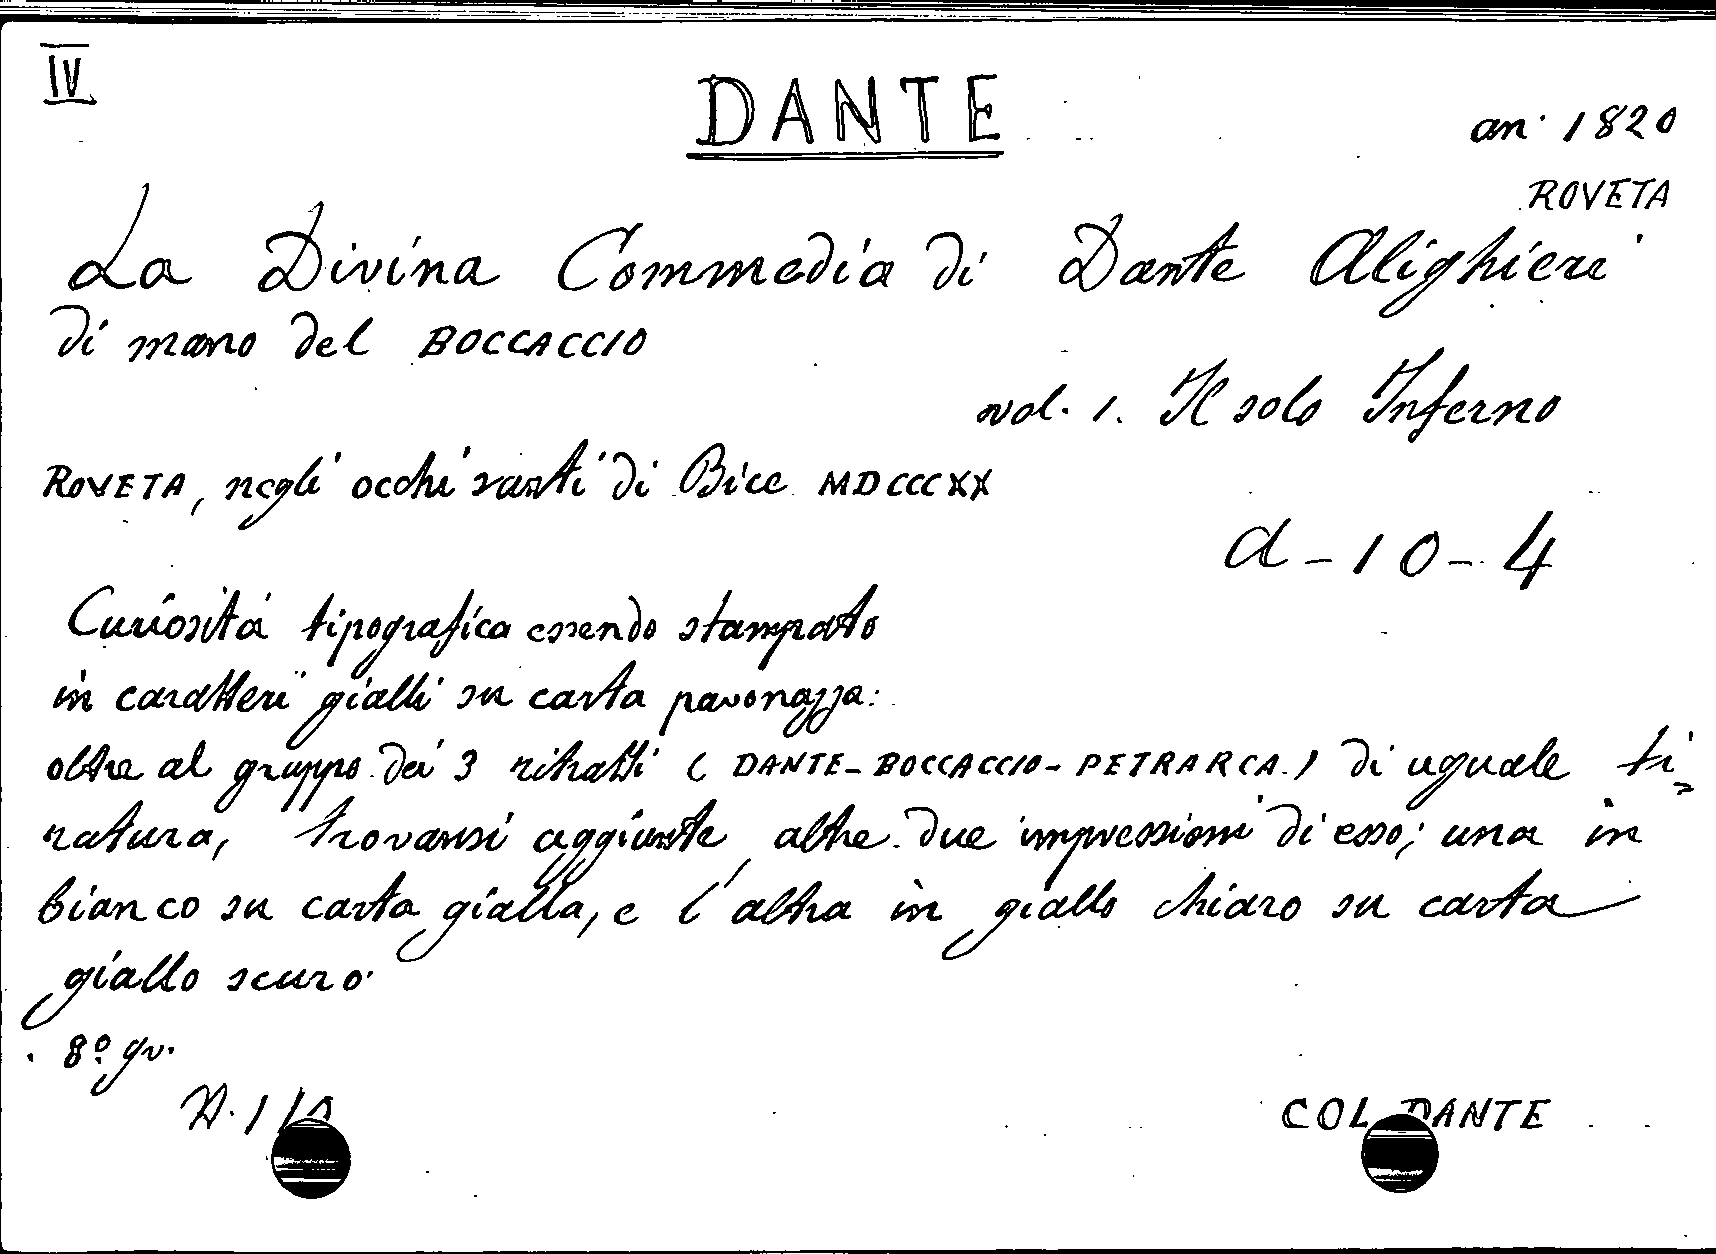 IV
DANTE
an. 1820
ROVETA
La Divina Commedia di Dante Alighieri
di mano del BOCCACCIO
vol. 1. Il solo Inferno
ROVETA, negli occhi santi di Bice MDCCCXX
d-10-4
Curiosità tipografica essendo stampato
in caratteri gialli su carta pavonazza:
oltre al gruppo dei 3 ritratti (DANTE-BOCCACCIO-PETRARCA.) di uguale ti=
ratura, trovansi aggiunte altre due impressioni di esso; una in
bianco su carta gialla, e l'altra in giallo chiaro su carta
giallo scuro.
8º gr.
COL. DANTE